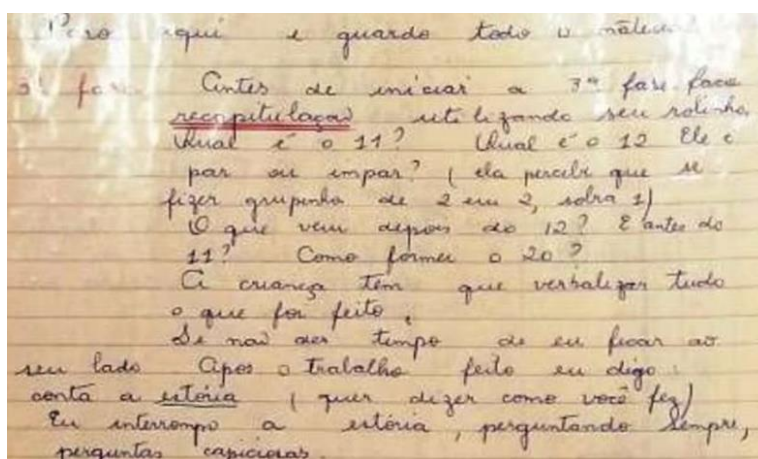 Paro aqui e guardo todo o material
3ª fase. Antes de iniciar a 3ª fase faço
recapitulação utilizando seu rolinho.
Qual é o 11? Qual é o 12 Ele é
par ou impar? ( ela percebe que se
fizer grupinho de 2 em 2, sobra 1)
O que vem depois do 12? E antes do
11? Como formei o 20?
A criança tem que verbalizar tudo
o que for feito.
Se não der tempo de eu ficar ao
seu lado Após o trabalho feito eu digo:
conta a estória ( quer dizer como você fez)
Eu interrompo a estória, perguntando sempre,
perguntas capiciosas.